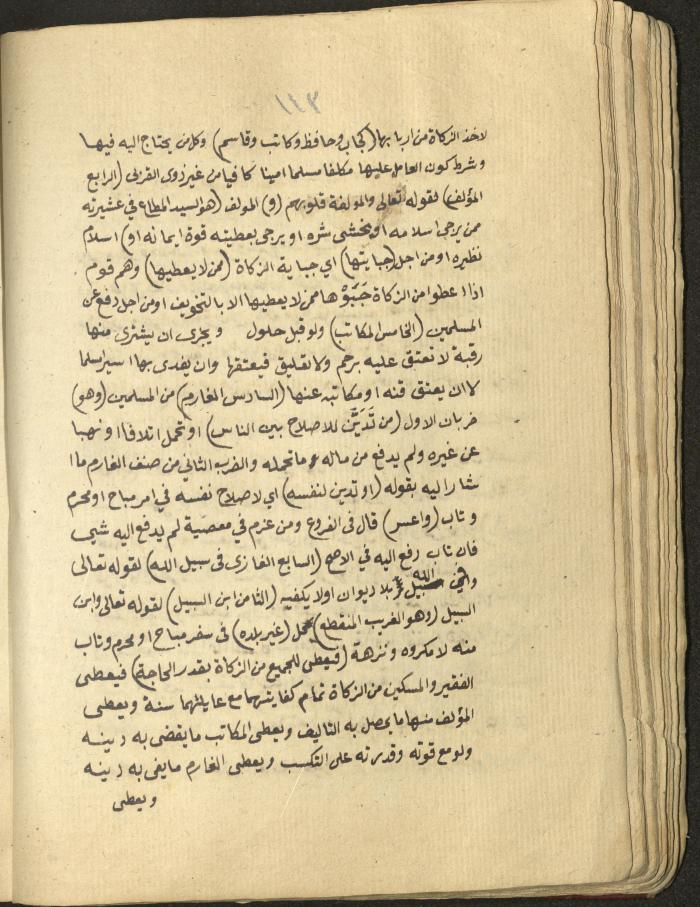 ١٤٣
لاخذ الزكاة من اربابها (كجاب وحافظ وكاتب وقاسم) وكل من يحتاج اليه فيها
وشرط كون العامل عليها مكلفا مسلما امينا كافيا من غير ذوى القربى (الرابع
المؤلف) لقوله تعالى والمؤلفة قلوبهم (و) المولف (هو السيد المطاع في عشيرته
ممن يرجى اسلامه او يخشى شره او يرجى بعطيته قوة ايمانه او) اسلام
نظيره او من اجل (جبايتها) اي جباية الزكاة (ممن لا يعطيها) وهم قوم
اذا اعطوا من الزكاة جَبَوْها ممن لا يعطيها الا بالتخويف او من اجل دفع عن
المسلمين (الخامس المكاتب) ولو قبل حلول ويجزى ان يشترى منها
رقبة لا تعتق عليه برحم ولا تعليق فيعتقها وان يفدى بها اسيرا مسلما
لا ان يعتق قنه او مكاتبه عنها (السادس الغارم) من المسلمين (وهو)
ضربان الاول (من تَدَيَّن للاصلاح بين الناس) او تحمل اتلافا او نهبا
عن غيره ولم يدفع من ماله ما تحمله والضرب الثاني من صنف الغارم ما ا
شار اليه بقوله (او تدين لنفسه) اي لاصلاح نفسه في امر مباح او محرم
وتاب (واعسر) قال في الفروع ومن غرم في معصية لم يدفع اليه شي
فان تاب دفع اليه في الاصح (السابع الغازى في سبيل الله) لقوله تعالى
وفي سبيل الله بلا ديوان او لا يكفيه (الثامن ابن السبيل) لقوله تعالى وابن
السبيل (وهو الغريب المنقطع) بمحل (غير بلده) في سفر مباح او محرم وتاب
منه لا مكروه ونزهة (فيعطى للجميع من الزكاة بقدر الحاجة) فيعطى
الفقير والمسكين من الزكاة تمام كفايتهما مع عايلتهما سنة ويعطى
المؤلف منها ما يحصل به التاليف ويعطى المكاتب ما يقضى به دينه
ولو مع قوته وقدرته على التكسب ويعطى الغارم ما يفى به دينه
ويعطى